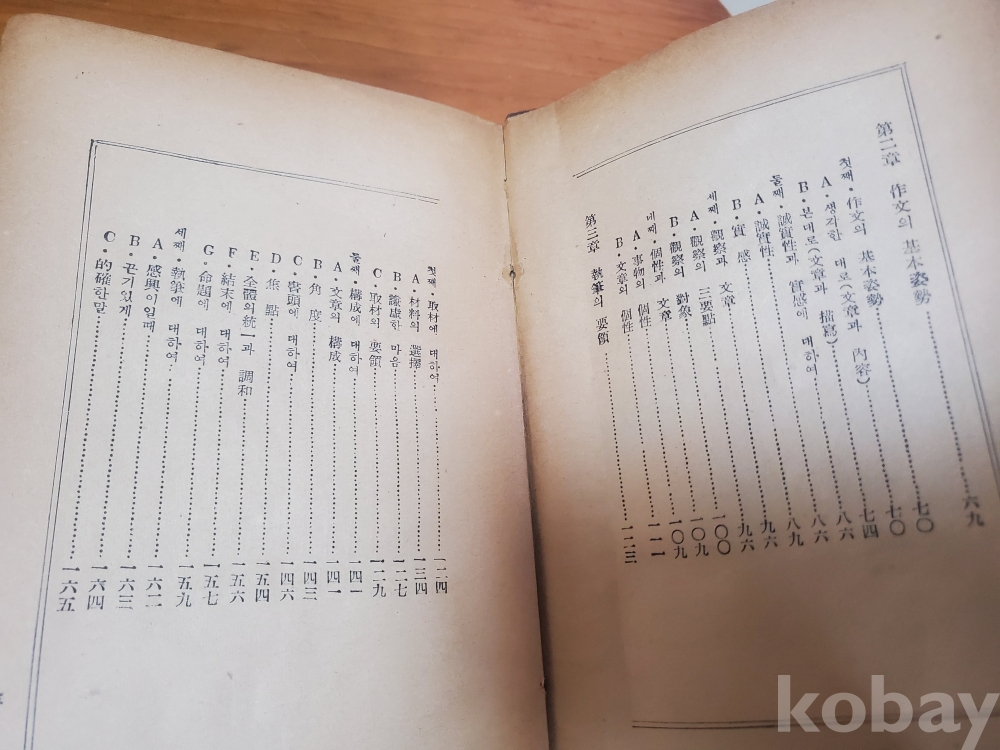 第二章 作文의 基本姿勢……六九
첫째・作文의 基本姿勢……七〇
A・생각한 대로(文章과 內容)……七〇
B・본대로(文章과 描寫)……七四
둘째・誠實性과 實感에 대하여……八六
A・誠實性……八六
B・實 感……八九
세째・觀察과 文章……九六
A・觀察의 三要點……九六
B・觀察의 對象……一〇〇
네째・個性과 文章……一〇九
A・事物의 個性……一〇九
B・文章의 個性……一一一
第三章 執筆의 要領……一二三
첫째・取材에 대하여……一二四
A・材料의 選擇……一三四
B・謙虛한 마음……一二七
C・取材의 要領……一二九
둘째・構成에 대하여……一四一
A・文章의 構成……一四一
B・角 度……一四三
C・書頭에 대하여……一四六
D・焦 點……一五四
E・全體의 統一과 調和……一五六
F・結末에 대하여……一五七
G・命題에 대하여……一五九
세째・執筆에 대하여……一六二
A・感興이일때……一六三
B・끈기있게……一六四
C・的確한말……一六五
kobay